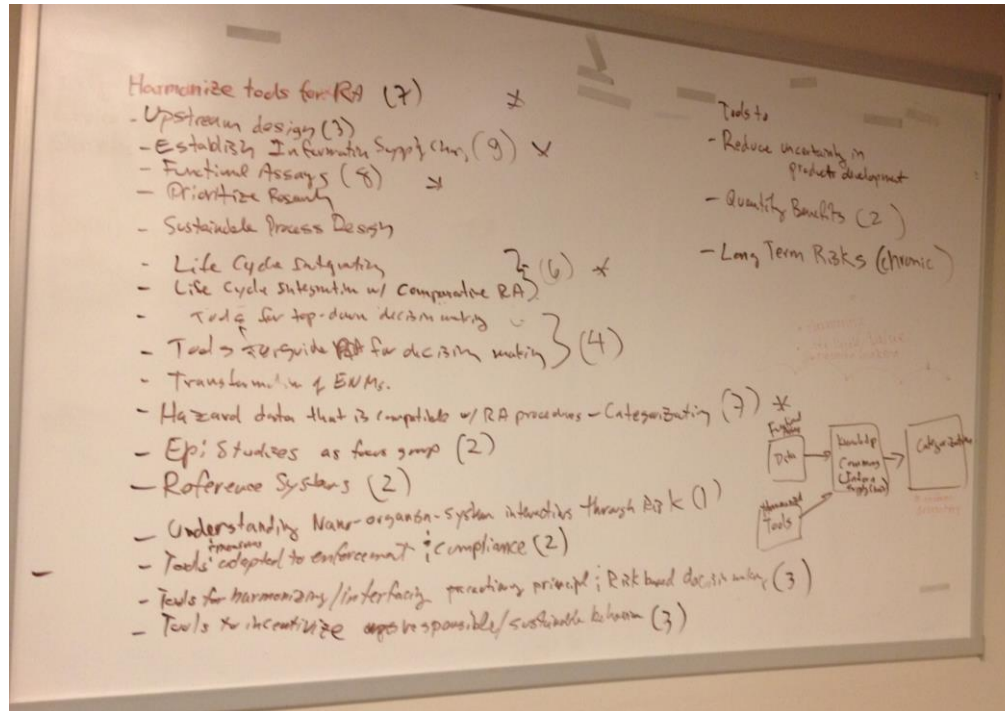 Harmonize tools for RA (7) *
- Upstream design (3)
- Establish Information Supply Chain (9) *
- Functional Assays (8) *
- Prioritize Research
- Sustainable Process Design
- Life Cycle Integration
- Life Cycle Integration w/ Comparative RA } (6) *
- Tools for top-down decision making
- Tools to guide RA for decision making } (4)
- Transformation of ENMs.
- Hazard data that is compatible w/ RA procedures - Categorization (7) *
- Epi Studies as focus group (2)
- Reference Systems (2)
- Understanding Nano-organism-system interactions through Risk (1)
- Tools adapted to enforcement & compliance (2)
- Tools for harmonizing/interfacing precautionary principle & Risk based decision making (3)
- Tools to incentivize responsible/sustainable behavior (3)
Tools to
- Reduce uncertainty in
products development
- Quantify Benefits (2)
- Long Term Risks (chronic)
Functional
Data
Harmonized
Tools
Knowledge
Commons
Supply Chain
Categorization